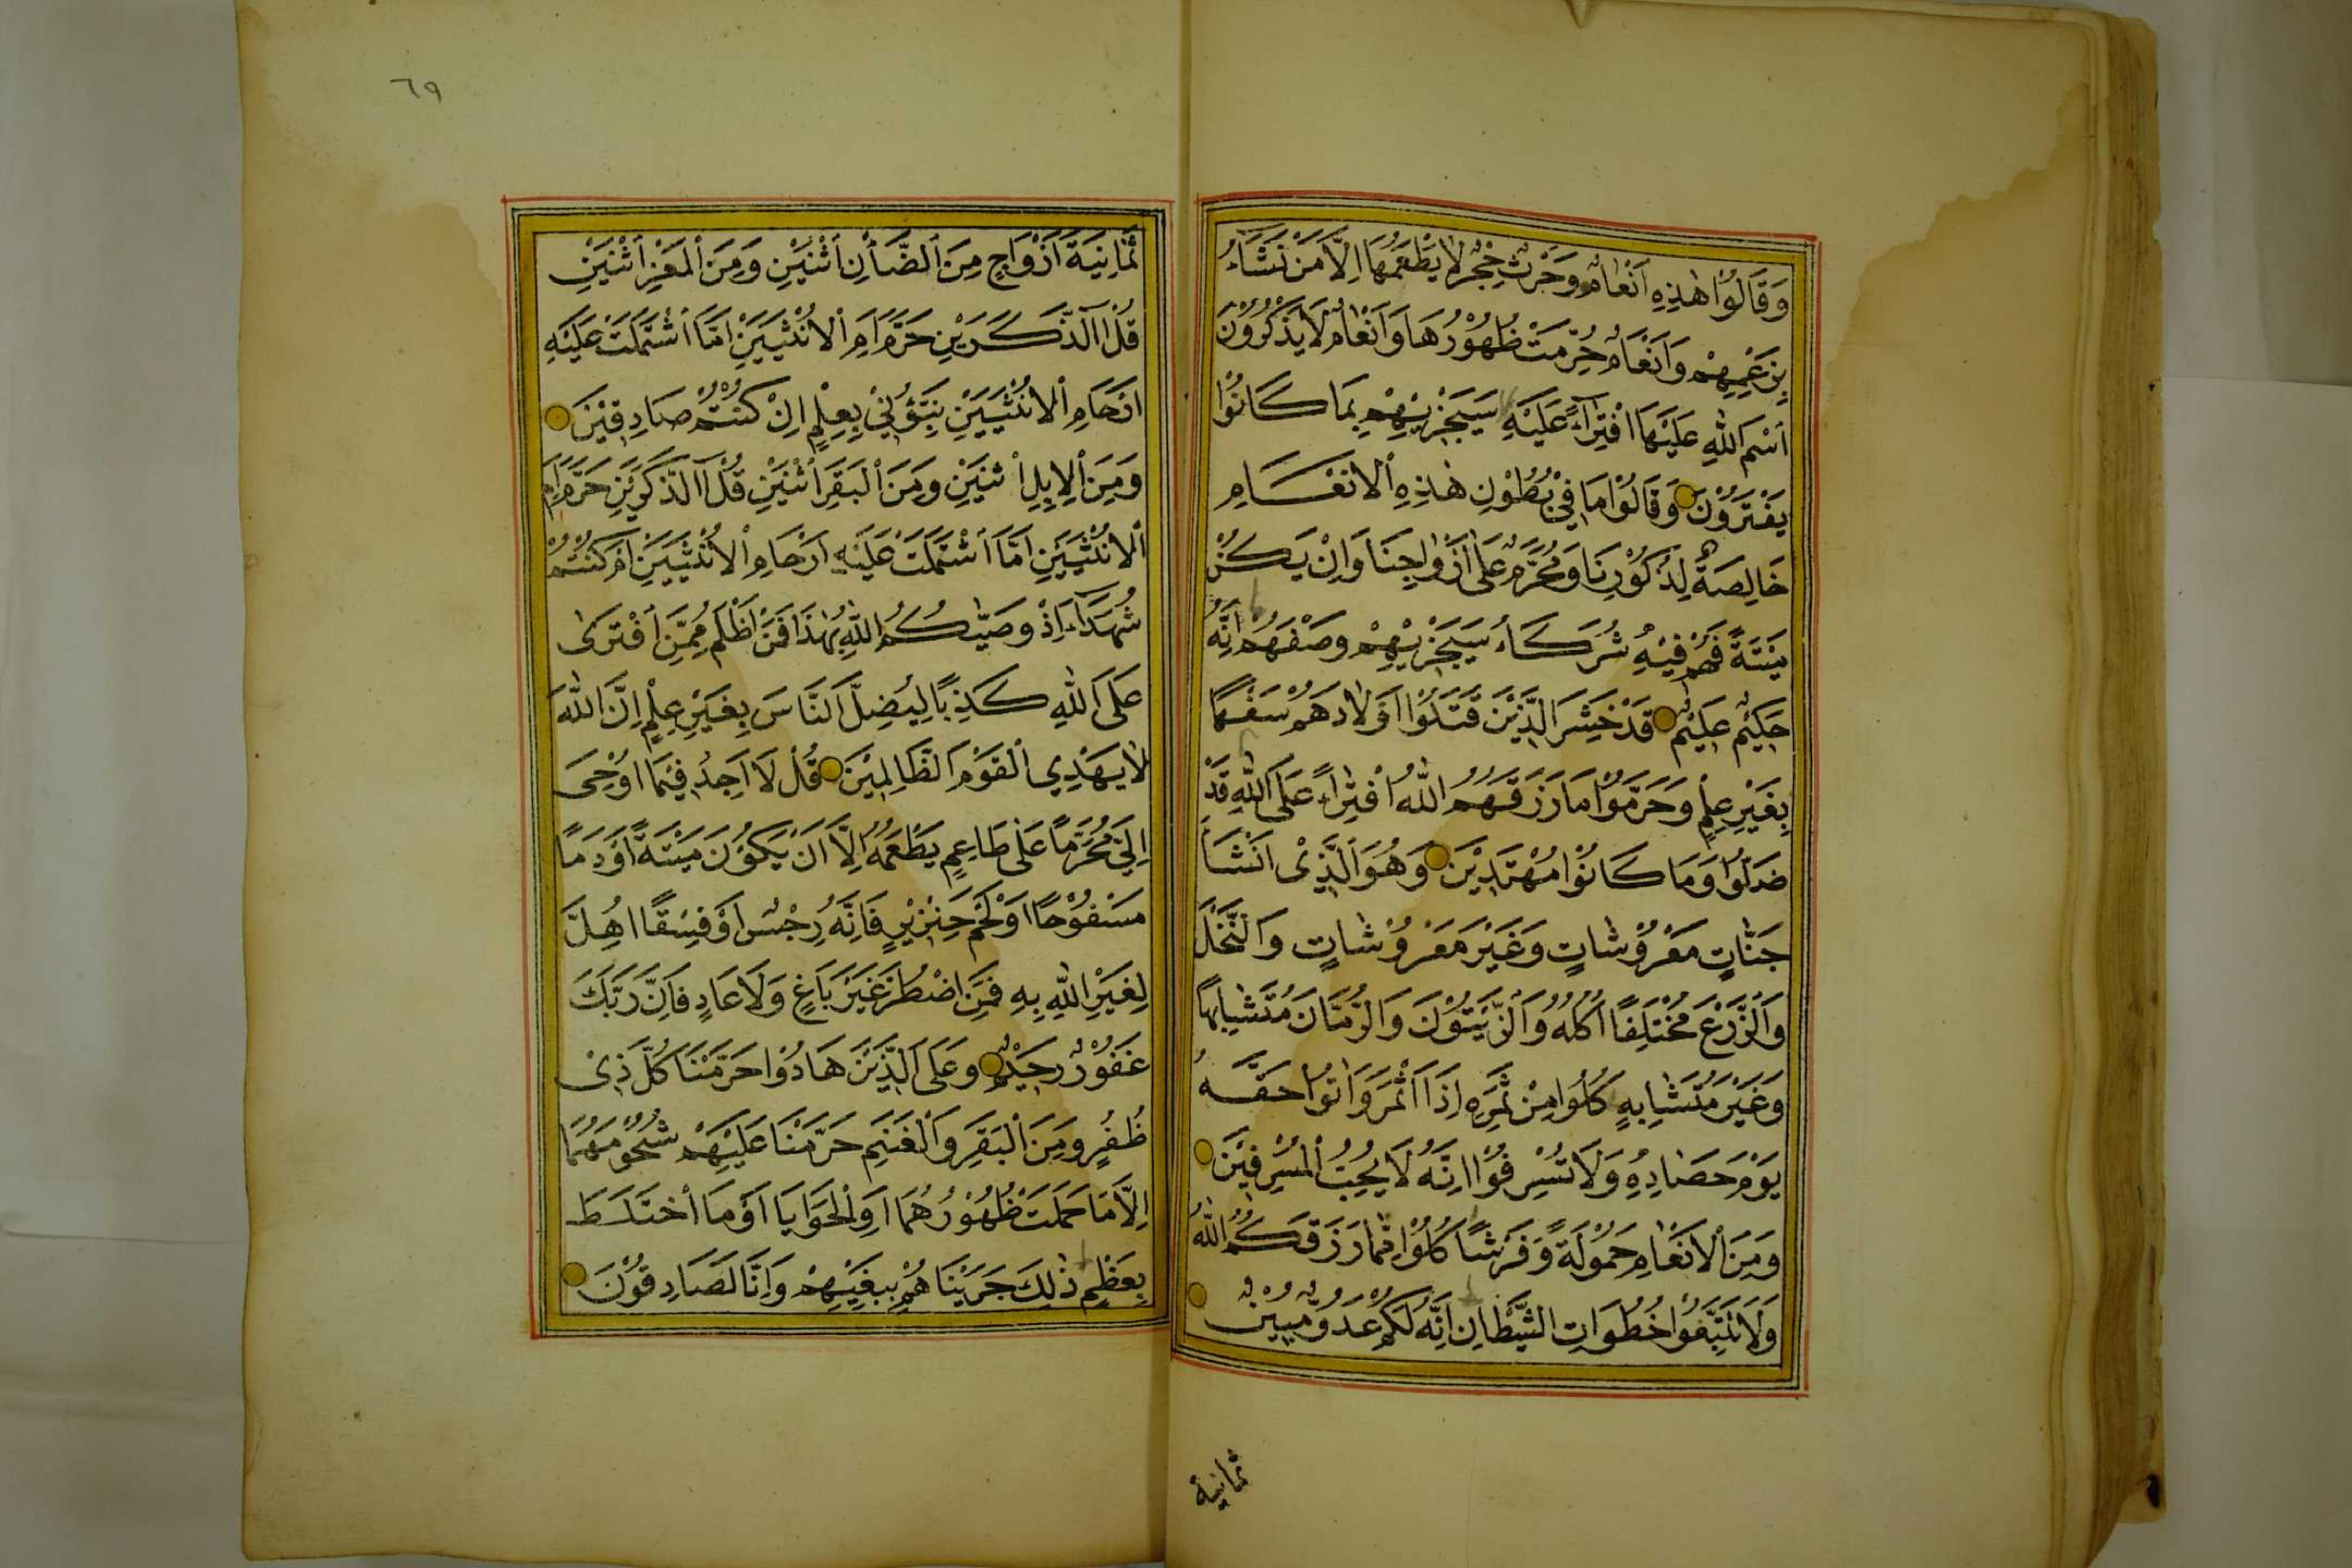 وَقَالُوْا هٰذِهِ اَنْعَامٌ وَحَرْثٌ حِجْرٌ لَا يَطْعَمُهَا اِلَّا مَنْ نَشَاءُ
بِزَعْمِهِمْ وَاَنْعَامٌ حُرِّمَتْ ظُهُوْرُهَا وَاَنْعَامٌ لَا يَذْكُرُوْنَ
اسْمَ اللّٰهِ عَلَيْهَا افْتِرَآءً عَلَيْهِ سَيَجْزِيْهِمْ بِمَا كَانُوْا
يَفْتَرُوْنَ وَقَالُوْا مَا فِيْ بُطُوْنِ هٰذِهِ الْاَنْعَامِ
خَالِصَةٌ لِذُكُوْرِنَا وَمُحَرَّمٌ عَلٰى اَزْوَاجِنَا وَاِنْ يَكُنْ
مَيْتَةً فَهُمْ فِيْهِ شُرَكَاءُ سَيَجْزِيْهِمْ وَصْفَهُمْ اِنَّهُ
حَكِيْمٌ عَلِيْمٌ قَدْ خَسِرَ الَّذِيْنَ قَتَلُوْا اَوْلَادَهُمْ سَفَهًا
بِغَيْرِ عِلْمٍ وَحَرَّمُوْا مَا رَزَقَهُمُ اللّٰهُ افْتِرَاءً عَلَى اللّٰهِ قَدْ
ضَلُّوْا وَمَا كَانُوْا مُهْتَدِيْنَ وَهُوَ الَّذِيْ اَنْشَاَ
جَنَّاتٍ مَعْرُوْشَاتٍ وَغَيْرَ مَعْرُوْشَاتٍ وَالنَّخْلَ
وَالزَّرْعَ مُخْتَلِفًا اُكُلُهُ وَالزَّيْتُوْنَ وَالرُّمَّانَ مُتَشَابِهًا
وَغَيْرَ مُتَشَابِهٍ كُلُوْا مِنْ ثَمَرِهِ اِذَا اَثْمَرَ وَاٰتُوْا حَقَّهُ
يَوْمَ حَصَادِهِ وَلَا تُسْرِفُوْا اِنَّهُ لَا يُحِبُّ الْمُسْرِفِيْنَ
وَمِنَ الْاَنْعَامِ حَمُوْلَةً وَفَرْشًا كُلُوْا مِمَّا رَزَقَكُمُ اللّٰهُ
وَلَا تَتَّبِعُوْا خُطُوَاتِ الشَّيْطَانِ اِنَّهُ لَكُمْ عَدُوٌّ مُبِيْنٌ
ثمانية
٦٩
ثَمَانِيَةَ اَزْوَاجٍ مِنَ الضَّأْنِ اثْنَيْنِ وَمِنَ الْمَعْزِ اثْنَيْنِ
قُلْ آلذَّكَرَيْنِ حَرَّمَ اَمِ الْاُنْثَيَيْنِ اَمَّا اشْتَمَلَتْ عَلَيْهِ
اَرْحَامِ الْاُنْثَيَيْنِ نَبِّؤُنِيْ بِعِلْمٍ اِنْ كُنْتُمْ صَادِقِيْنَ
وَمِنَ الْاِبِلِ اثْنَيْنِ وَمِنَ الْبَقَرِ اثْنَيْنِ قُلْ آلذَّكَرَيْنِ حَرَّمَ اَمِ
الْاُنْثَيَيْنِ اَمَّا اشْتَمَلَتْ عَلَيْهِ اَرْحَامِ الْاُنْثَيَيْنِ اَمْ كُنْتُمْ
شُهَدَآءَ اِذْ وَصّٰيكُمُ اللّٰهُ بِهٰذَا فَمَنْ اَظْلَمُ مِمَّنِ افْتَرٰى
عَلَى اللّٰهِ كَذِبًا لِيُضِلَّ النَّاسَ بِغَيْرِ عِلْمٍ اِنَّ اللّٰهَ
لَا يَهْدِي الْقَوْمَ الظَّالِمِيْنَ قُلْ لَا اَجِدُ فِيْمَا اُوْحِيَ
اِلَيَّ مُحَرَّمًا عَلٰى طَاعِمٍ يَطْعَمُهُ اِلَّا اَنْ يَكُوْنَ مَيْتَةً اَوْ دَمًا
مَسْفُوْحًا اَوْ لَحْمَ خِنْزِيْرٍ فَاِنَّهُ رِجْسٌ اَوْ فِسْقًا اُهِلَّ
لِغَيْرِ اللّٰهِ بِهِ فَمَنِ اضْطُرَّ غَيْرَ بَاغٍ وَلَا عَادٍ فَاِنَّ رَبَّكَ
غَفُوْرٌ رَحِيْمٌ وَعَلَى الَّذِيْنَ هَادُوْا حَرَّمْنَا كُلَّ ذِيْ
ظُفُرٍ وَمِنَ الْبَقَرِ وَالْغَنَمِ حَرَّمْنَا عَلَيْهِمْ شُحُوْمَهُمَا
اِلَّا مَا حَمَلَتْ ظُهُوْرُهُمَا اَوِ الْحَوَايَا اَوْ مَا اخْتَلَطَ
بِعَظْمٍ ذٰلِكَ جَزَيْنَاهُمْ بِبَغْيِهِمْ وَاِنَّا لَصَادِقُوْنَ